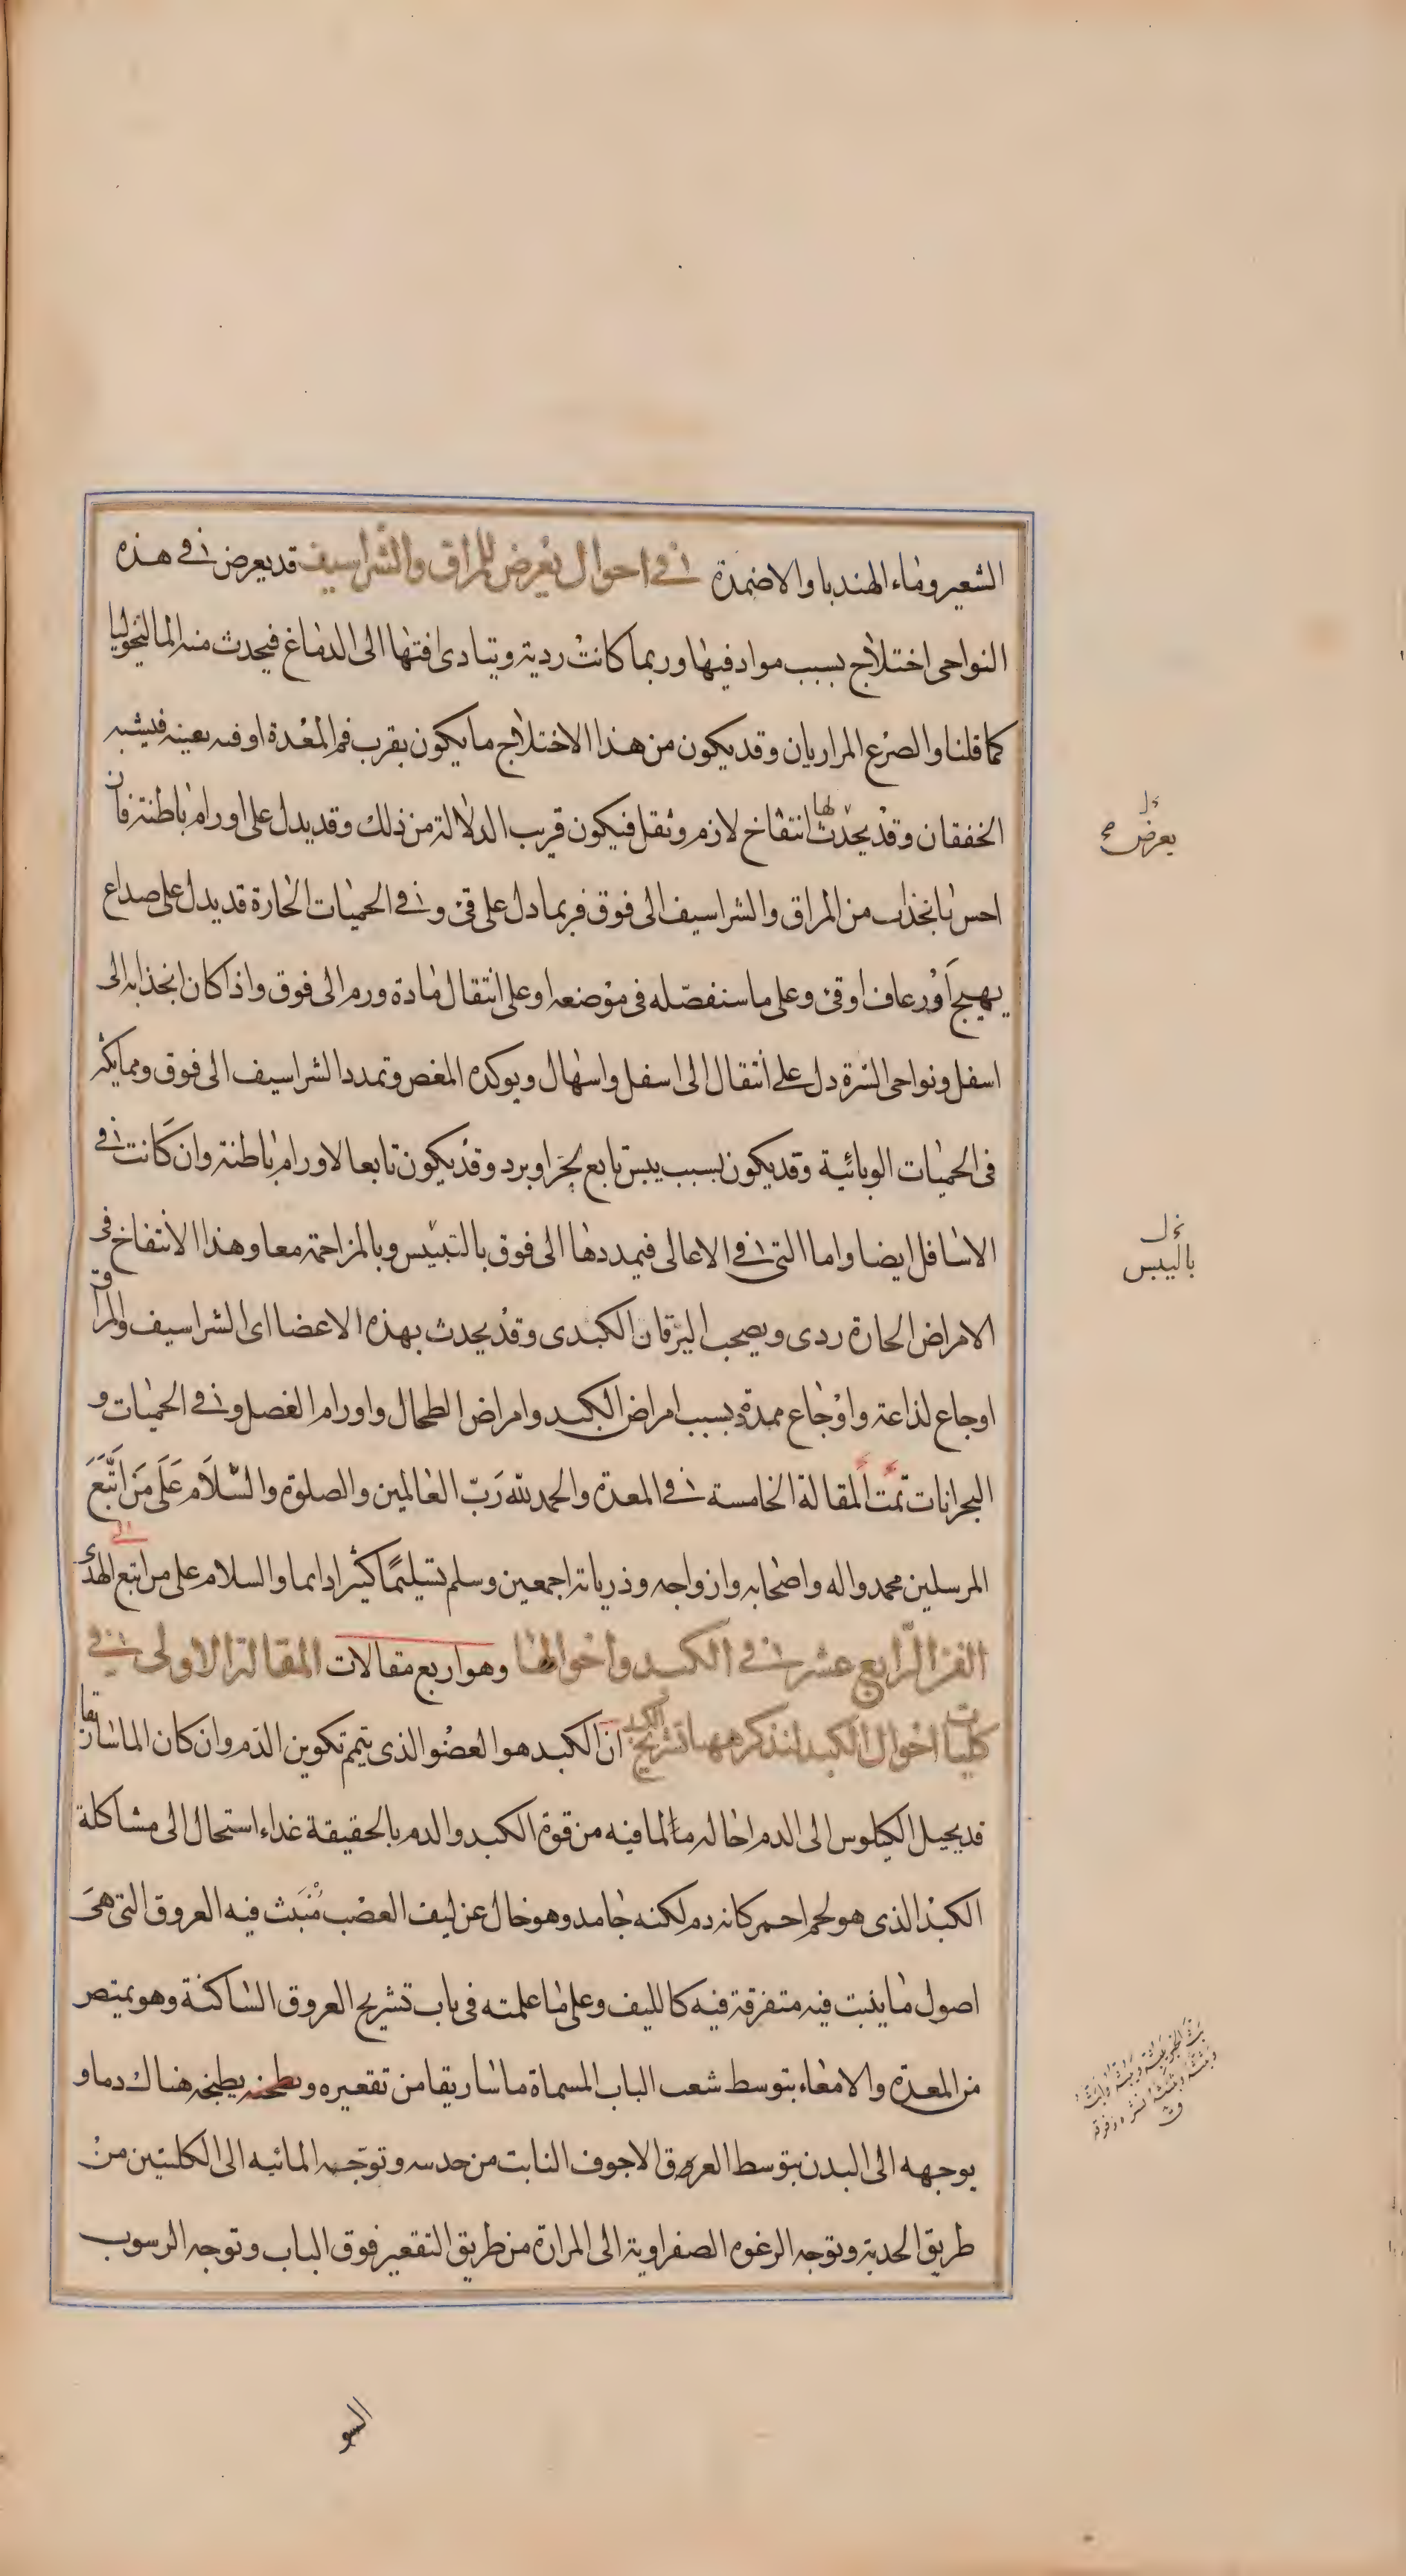 الشعير وماء الهندبا والاضمدة في احوال يعرض للمراق والشراسيف قد يعرض في هذه
النواحى اختلاج بسبب مواد فيها وربما كانت ردية ويتادى افتها الى الدماغ فيحدث منه المالنخوليا
كما قلنا والصرع المراريان وقد يكون من هذا الاختلاج ما يكون بقرب فم المعدة او فيه بعينه فيشبه
الخفقان وقد يحدث لها انتفاخ لازم وثقل فيكون قريب الدلالة من ذلك وقد يدل على اورام باطنة فان
احس بانجذاب من المراق والشراسيف الى فوق فربما دل على قئ وفي الحميات الحارة قد يدل على صداع
يهيج او رعاف او قئ وعلى ما سنفصله فى موضعه او على انتقال مادة ورم الى فوق واذا كان انجذابه الى
اسفل ونواحى السرة دل على انتقال الى اسفل واسهال ويوكده المغص وتمدد الشراسيف الى فوق ومما يكثر
فى الحميات الوبائية وقد يكون بسبب يبس تابع لحر او برد وقد يكون تابعا لاورام باطنة وان كانت في
الاسافل ايضا واما التى في الاعالى فيمددها الى فوق بالتيبيس وبالمزاحمة معا وهذا الانتفاخ فى
الامراض الحارة ردى ويصحب اليرقان الكبدى وقد يحدث بهذه الاعضا اى الشراسيف والمراق
اوجاع لذاعة واوجاع ممددة بسبب امراض الكبد وامراض الطحال واورام الفصل وفي الحميات و
البحرانات تمت المقالة الخامسة في المعدة والحمد لله رب العالمين والصلوة والسلام على من اتبع
المرسلين محمد واله واصحابه وازواجه وذرياته اجمعين وسلم تسليما كثيرا دايما والسلام على من اتبع الهدى
الفن الرابع عشر في الكبد واحوالها وهو اربع مقالات المقالة الاولى في
كليات احوال الكبد لنذكر ههنا تشريح الكبد ان الكبد هو العضو الذى يتمم تكوين الدم وان كان الماساريقا
قد يحيل الكيلوس الى الدم احالة ما لما فيه من قوة الكبد والدم بالحقيقة غذاء استحال الى مشاكلة
الكبد الذى هو لحم احمر كانه دم لكنه جامد وهو خال عن ليف العصب منبث فيه العروق التى هى
اصول ما ينبت فيه متفرقة فيه كالليف وعلى ما علمته فى باب تشريح العروق الساكنة وهو يمتص
من المعدة والامعاء بتوسط شعب الباب المسماة ماساريقا من تقعيره ويطحنه يطبخه هناك دما و
يوجهه الى البدن بتوسط العرق الاجوف النابت من حدبته وتوجه المائيه الى الكلىتين من
طريق الحدبة وتوجه الرغوه الصفراوية الى المرارة من طريق التقعير فوق الباب وتوجه الرسوب
السو
يعرض صح
بالیبس